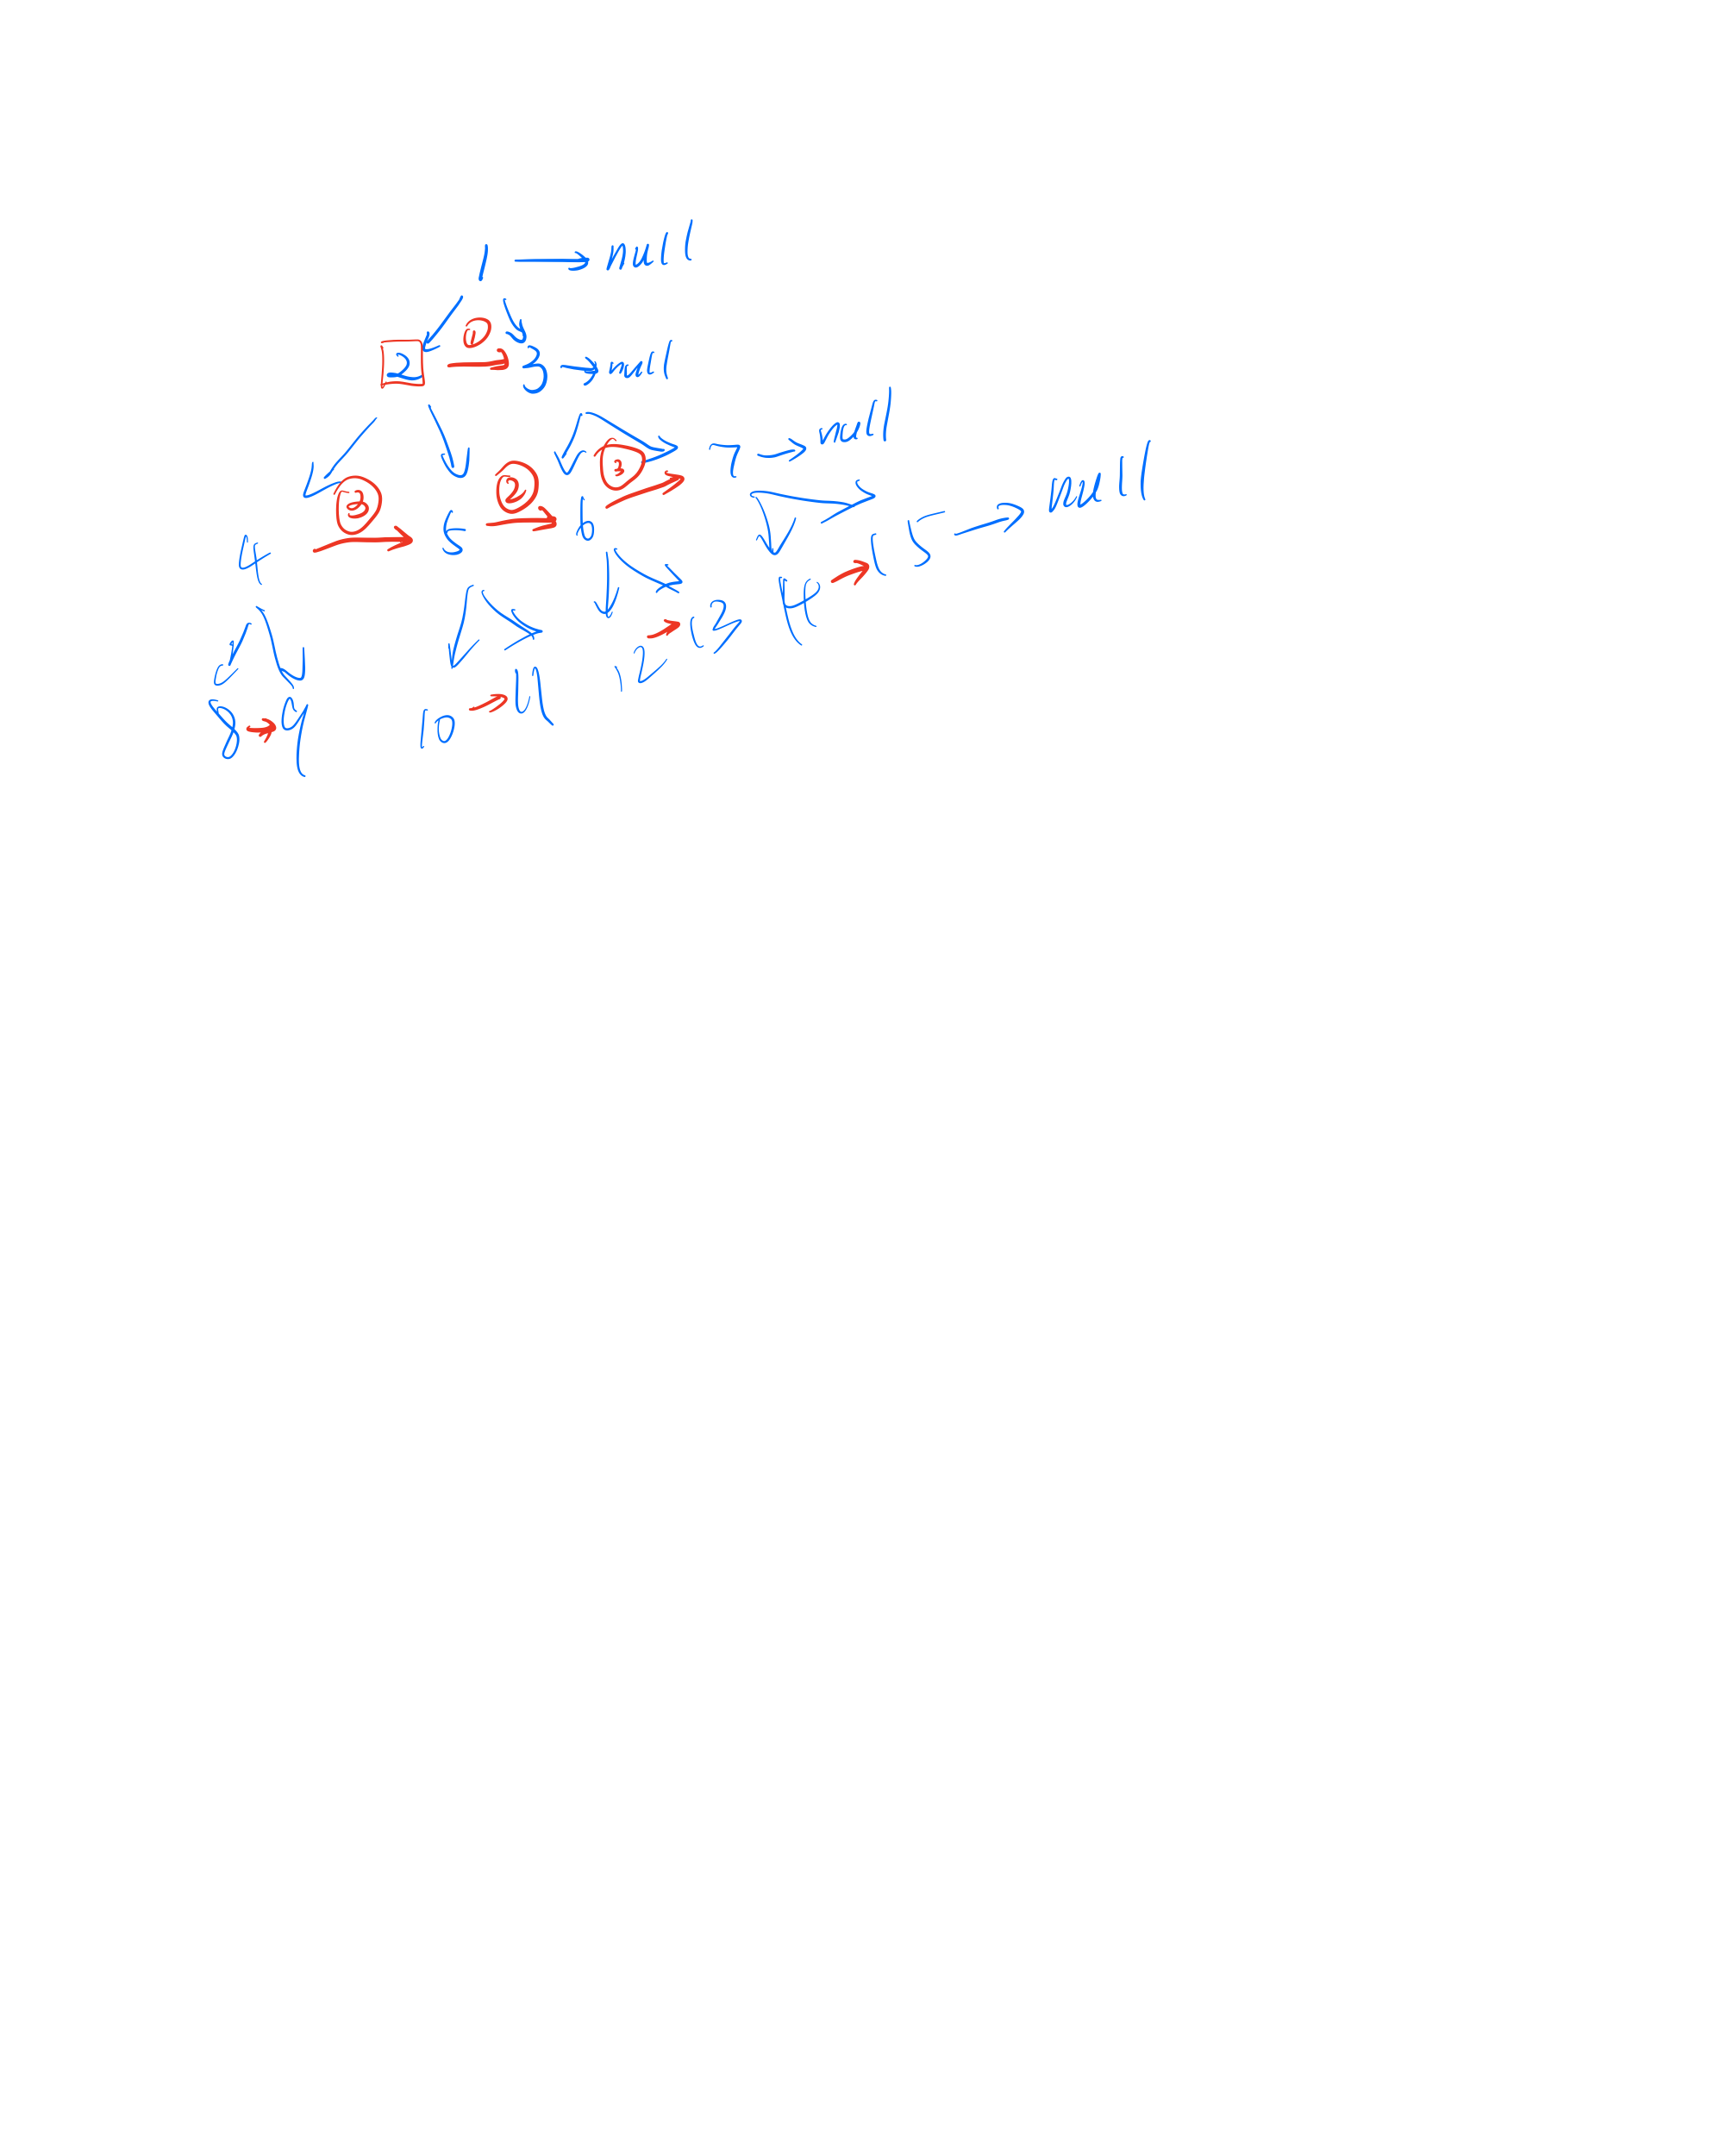 1 → null
①
2 → 3 → null
② ③
4 → 5 → 6 → 7 → null
8 → 9 10 → 11 12 → 13 14 → 15 → null